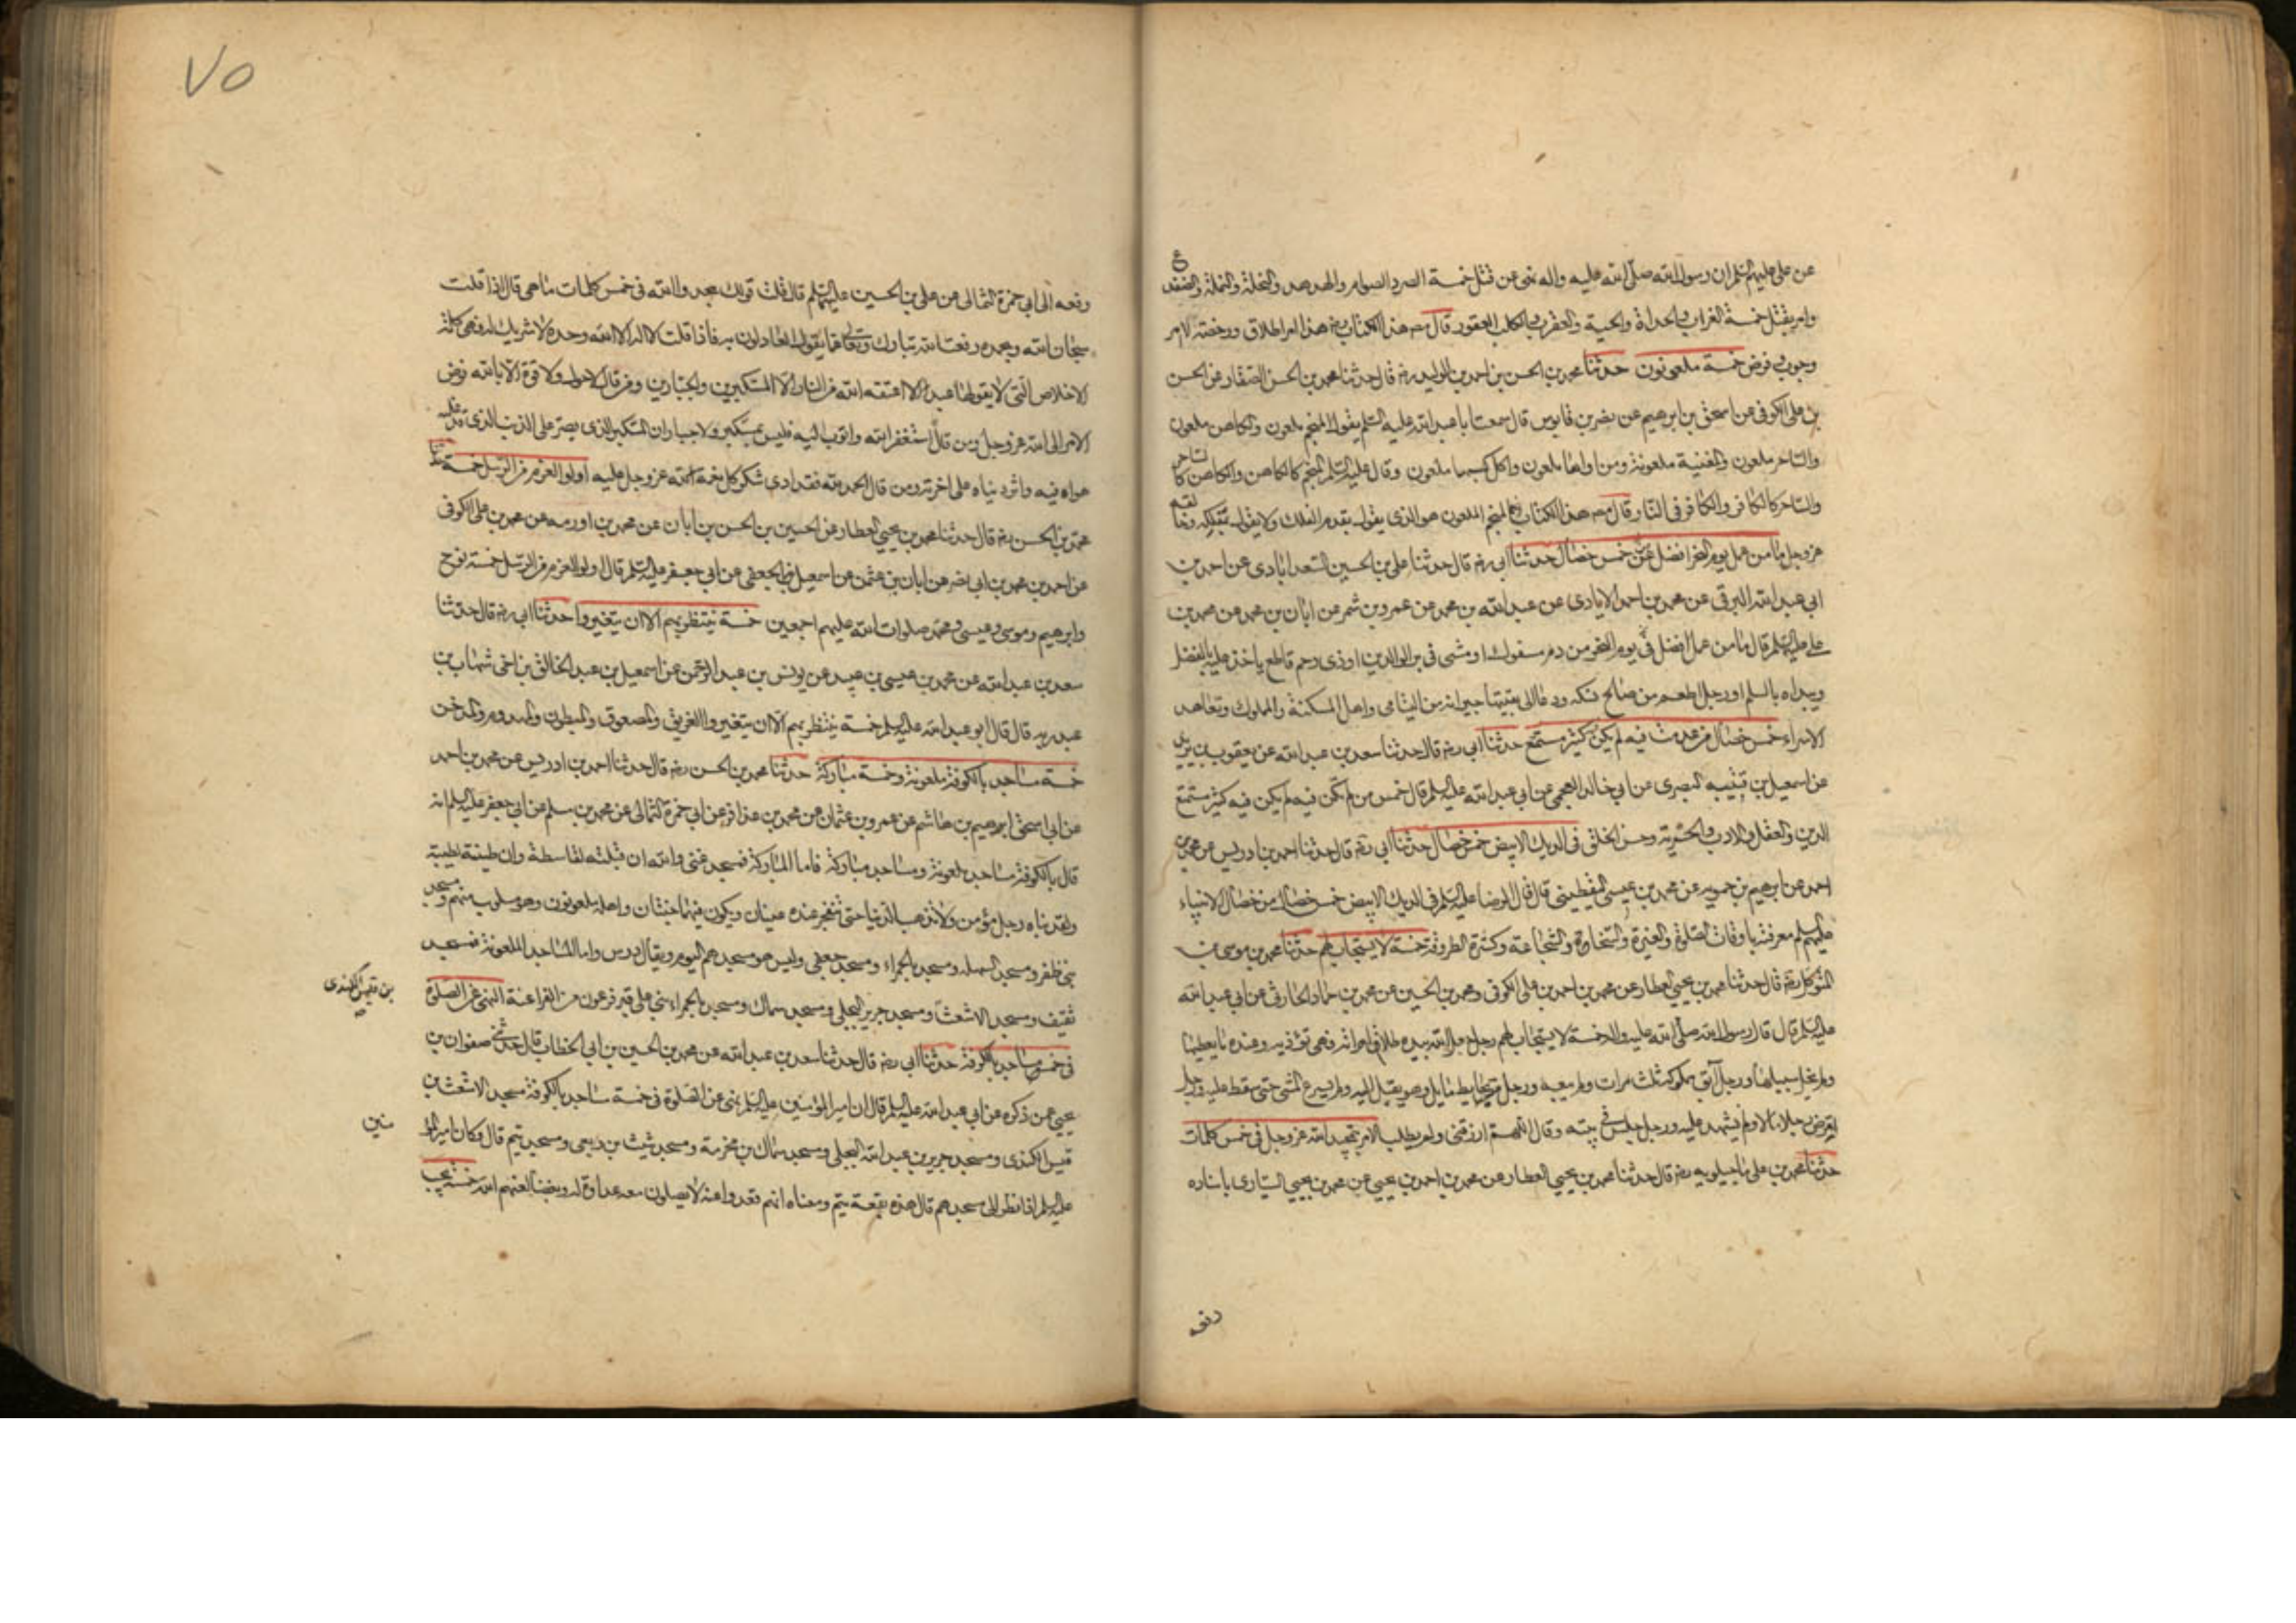 عن علی علیهم السلم ان رسول الله صلی الله علیه واله نهی عن قتل خمسة الصرد الصوام والهدهد والنحلة والنملة والضفدع
وامر بقتل خمسة الغراب والحداة والحیة والعقرب والکلب العقور قال مص هذا الکتاب رضه هذا امر اطلاق ورخصة لا امر
وجوب وفرض خمسة ملعونون حدثنا محمد بن الحسن بن احمد بن الولید رضه قال حدثنا محمد بن الحسن الصفار عن الحسن
بن علی الکوفی عن اسحق بن ابرهیم عن نضر بن قابوس قال سمعت ابا عبد الله علیه السلم یقول المنجم ملعون والکاهن ملعون
والساحر ملعون والمغنیة ملعونة ومن اواها ملعون واکل کسبها ملعون وقال علیه السلم المنجم کالکاهن والکاهن کالساحر
والساحر کالکافر والکافر فی النار قال مص هذا الکتاب المنجم الملعون هو الذی یقول بقدم الفلک ولا یقول
عز وجل ما من عمل یوم النحر افضل عن خمس خصال حدثنا ابی رضه قال حدثنا علی بن الحسین السعدابادی عن احمد بن
ابی عبد الله البرقی عن محمد بن احمد الایادی عن عبد الله بن محمد عن عمرو بن شمر عن ابان بن محمد عن محمد بن
علی علیه السلم قال ما من عمل افضل فی یوم النحر من دم مسفوک او مشی فی بر الوالدین او ذی رحم قاطع یاخذ علیه بالفضل
ویبداه بالسلم او رجل اطعم من صالح نسکه ودعا الی بقیتها جیرانه من الیتامی واهل المسکنة والمملوک وتعاهد
الاسراء خمس خصال من عدمت فیه لم یکن کثیر مستمتع حدثنا ابی رضه قال حدثنا سعد بن عبد الله عن یعقوب بن یزید
عن اسمعیل بن قتیبه البصری عن ابی خالد العجمی عن ابی عبد الله علیه السلم قال خمس من لم تکن فیه لم یکن فیه کثیر مستمتع
الدین والعقل والادب والحریة وحسن الخلق فی الدیک الابیض خمس خصال حدثنا ابی رضه قال حدثنا احمد بن ادریس عن محمد بن
احمد عن ابرهیم بن حمویه عن محمد بن عیسی الیقطینی قال قال الرضا علیه السلم فی الدیک الابیض خمس خصال من خصال الانبیاء
علیهم السلم معرفته باوقات الصلوة والغیرة والسخاوة والشجاعة وکثرة الطروقة خمسة لا یستجاب لهم حدثنا محمد بن موسی بن
المتوکل رضه قال حدثنا محمد بن یحیی العطار عن محمد بن احمد بن علی الکوفی ومحمد بن الحسین عن محمد بن حماد الحارثی عن ابی عبد الله
علیه السلم قال قال رسول الله صلی الله علیه واله خمسة لا یستجاب لهم رجل جعل الله بیده طلاق امراته فهی تؤذیه وعنده ما یعطیها
ولم یخل سبیلها ورجل ابق مملوکه ثلث مرات ولم یبعه ورجل مر بحایط مایل وهو یقبل الیه ولم یسرع المشی حتی سقط علیه ورجل
اقرض رجلا مالا ولم یشهد علیه ورجل جلس فی بیته وقال اللهم ارزقنی ولم یطلب الامر بتمجید الله عز وجل فی خمس کلمات
حدثنا محمد بن علی ماجیلویه رضه قال حدثنا محمد بن یحیی العطار عن محمد بن احمد بن یحیی عن محمد بن یحیی السیاری باسناده
رفعه
٧٥
رفعه الی ابی حمزة الثمالی عن علی بن الحسین علیهما السلم قال قلت قولک مجد والله فی خمس کلمات ما هی قال اذا قلت
سبحان الله وبحمده رفعت الله تبارک وتعالی عما یقول العادلون به فاذا قلت لا اله الا الله وحده لا شریک له فهی کلمة
الاخلاص التی لا یقولها عبد الا اعتقه الله من النار الا المستکبرین والجبارین ومن قال لا حول ولا قوة الا بالله فوض
الامر الی الله عز وجل ومن قال استغفر الله واتوب الیه فلیس بمستکبر ولا جبار ان المستکبر الذی یصر علی الذنب الذی قد غلبه
هواه فیه واثر دنیاه علی اخرته ومن قال الحمد لله فقد ادی شکر کل نعمة لله عز وجل علیه اولوا العزم من الرسل خمسة حدثنا
محمد بن الحسن رضه قال حدثنا محمد بن یحیی العطار عن الحسین بن الحسن بن ابان عن محمد بن اورمه عن محمد بن علی الکوفی
عن احمد بن محمد بن ابی نصر عن ابان بن عثمن عن اسمعیل الجعفی عن ابی جعفر علیه السلم قال اولوا العزم من الرسل خمسة نوح
وابرهیم وموسی وعیسی ومحمد صلوات الله علیهم اجمعین خمسة ینتظر بهم الا ان یتغیروا حدثنا ابی رضه قال حدثنا
سعد بن عبد الله عن محمد بن عیسی بن عبید عن یونس بن عبد الرحمن عن اسمعیل بن عبد الخالق بن اخی شهاب بن
عبد ربه قال قال ابو عبد الله علیه السلم خمسة ینتظر بهم الا ان یتغیروا الغریق والمصعوق والمبطون والمهدوم والمدخن
خمسة مساجد بالکوفة ملعونة وخمسة مبارکة حدثنا محمد بن الحسن رضه قال حدثنا احمد بن ادریس عن محمد بن احمد
عن ابی اسحق ابرهیم بن هاشم عن عمرو بن عثمان عن محمد بن عذافر عن ابی حمزة الثمالی عن محمد بن مسلم عن ابی جعفر علیه السلم انه
قال بالکوفة مساجد ملعونة ومساجد مبارکة فاما المبارکة فمسجد غنی والله ان قبلته لقاسطة وان طینته لطیبة
ولقد بناه رجل مؤمن ولا تذهب الدنیا حتی تنفجر عنده عینان ویکون فیهما جنتان واهله ملعونون وهو مسلوب منهم ومسجد
بنی ظفر ومسجد السهله ومسجد بالحمراء ومسجد جعفی ولیس هو مسجدهم الیوم ویقال درس واما المساجد الملعونة فمسجد
ثقیف ومسجد الاشعث ومسجد جریر البجلی ومسجد سماک ومسجد بالحمراء بنی علی قبر فرعون من الفراعنة النهی عن الصلوة
بن قیس الکندی
فی خمس مساجد بالکوفة حدثنا ابی رضه قال حدثنا سعد بن عبد الله عن محمد بن الحسین بن ابی الخطاب قال حدثنی صفوان بن
یحیی عمن ذکره عن ابی عبد الله علیه السلم قال ان امیر المؤمنین علیه السلم نهی عن الصلوة فی خمسة مساجد بالکوفة مسجد الاشعث بن
قیس الکندی ومسجد جریر بن عبد الله البجلی ومسجد سماک بن مخرمة ومسجد شبث بن ربعی ومسجد تیم قال وکان امیر المؤ
منین
علیه السلم اذا نظر الی مسجدهم قال هذه بقعة تیم ومعناه انهم قعدوا عنه لا یصلون معه عداوة له وبغضا لعنهم الله خمسة یجب